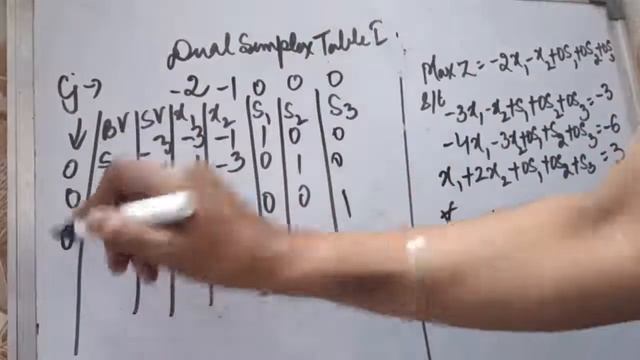 Dual Simplex Table I.
Cj → -2 -1 0 0 0
BV SV x₁ x₂ S₁ S₂ S₃
0 -3 -3 -1 1 0 0
0 -3 0 1 0
0 0 0 1
Max Z = -2x₁-x₂+0S₁+0S₂+0S₃
S/t
-3x₁-x₂+S₁+0S₂+0S₃=-3
-4x₁-3x₂+0S₁+S₂+0S₃=-6
x₁+2x₂+0S₁+0S₂+S₃=3